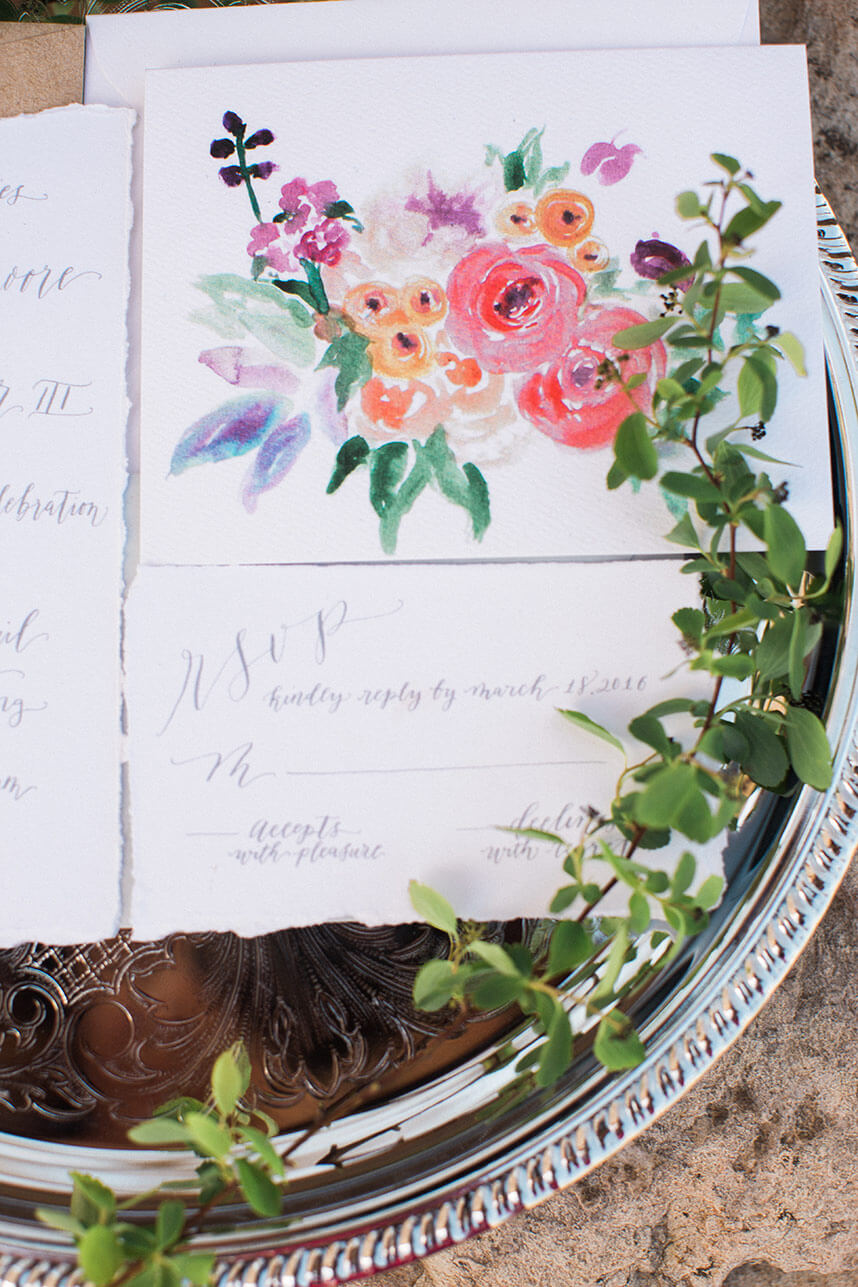 es
oore
r III
lebration
il
ng
m
rsvp
kindly reply by march 18.2016
M
accepts
with pleasure
declines
with